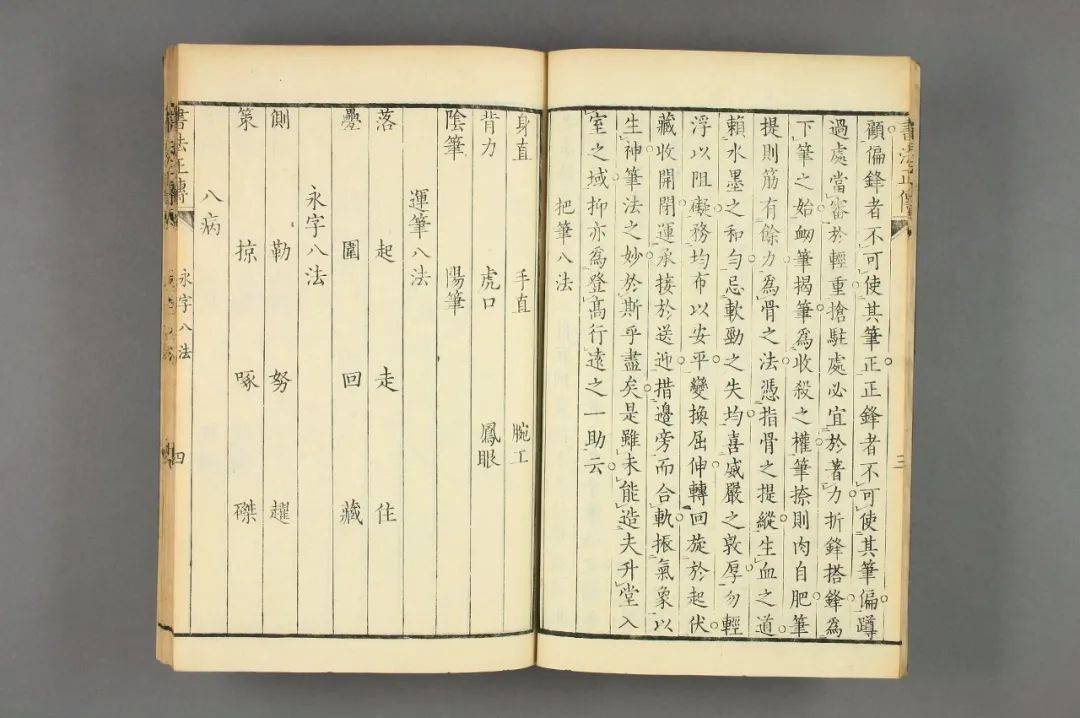 顧偏鋒者不可使其筆正正鋒者不可使其筆偏蹲
過處當審於輕重搶駐處必宜於著力折鋒搭鋒為
下筆之始衂筆揭筆為收殺之權筆捺則肉自肥筆
提則筋有餘力為骨之法憑指骨之提縱生血之道
賴水墨之和勻忌軟勁之失均喜威嚴之敦厚勿輕
浮以阻礙務均布以安平變換屈伸轉回旋於起伏
藏收開閉運承接於送迎措邊旁而合軌振氣象以
生神筆法之妙於斯乎盡矣是雖未能造夫升堂入
室之域抑亦為登高行遠之一助云
把筆八法
三
身直 手直 腕工
背力 虎口 鳳眼
陰筆 陽筆
運筆八法
落 起 走 住
疊 圍 回 藏
永字八法
側 勒 努 趯
策 掠 啄 磔
八病
書法正傳
永字八法
四